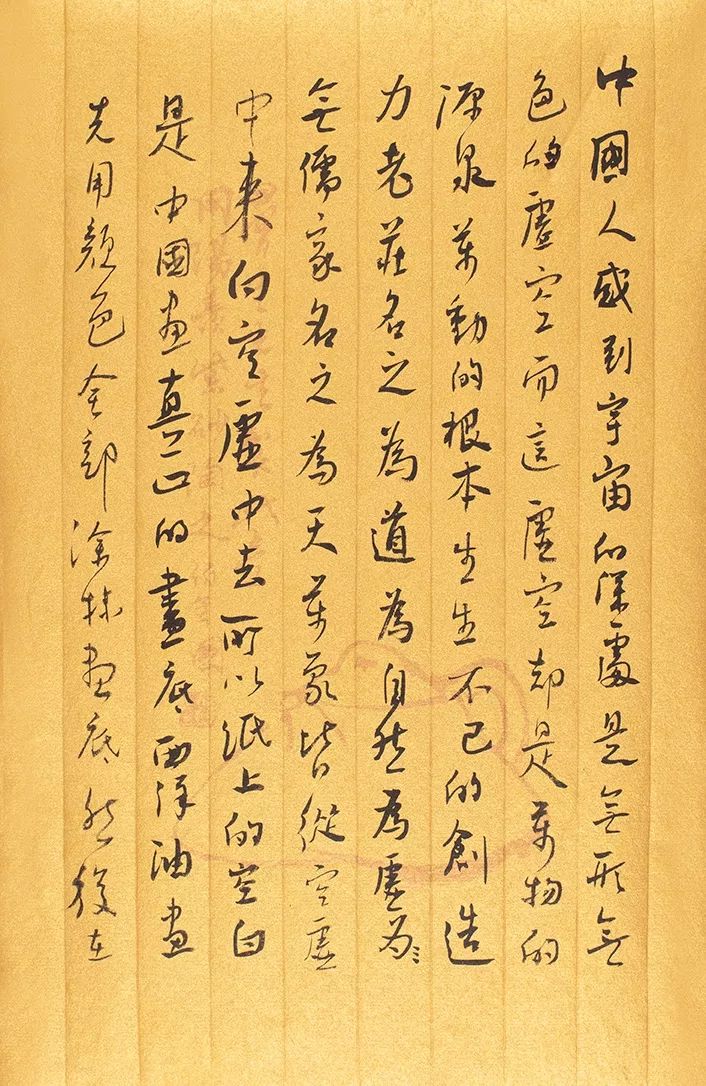 中國人感到宇宙的深處是無形無
色的虛空而這虛空却是萬物的
源泉萬動的根本生生不已的創造
力老莊名之為道為自然為虛為
無儒家名之為天萬象皆從空虛
中来向空虛中去所以紙上的空白
是中國画真正的畫底西洋油画
先用顏色全部涂抹画底然後在